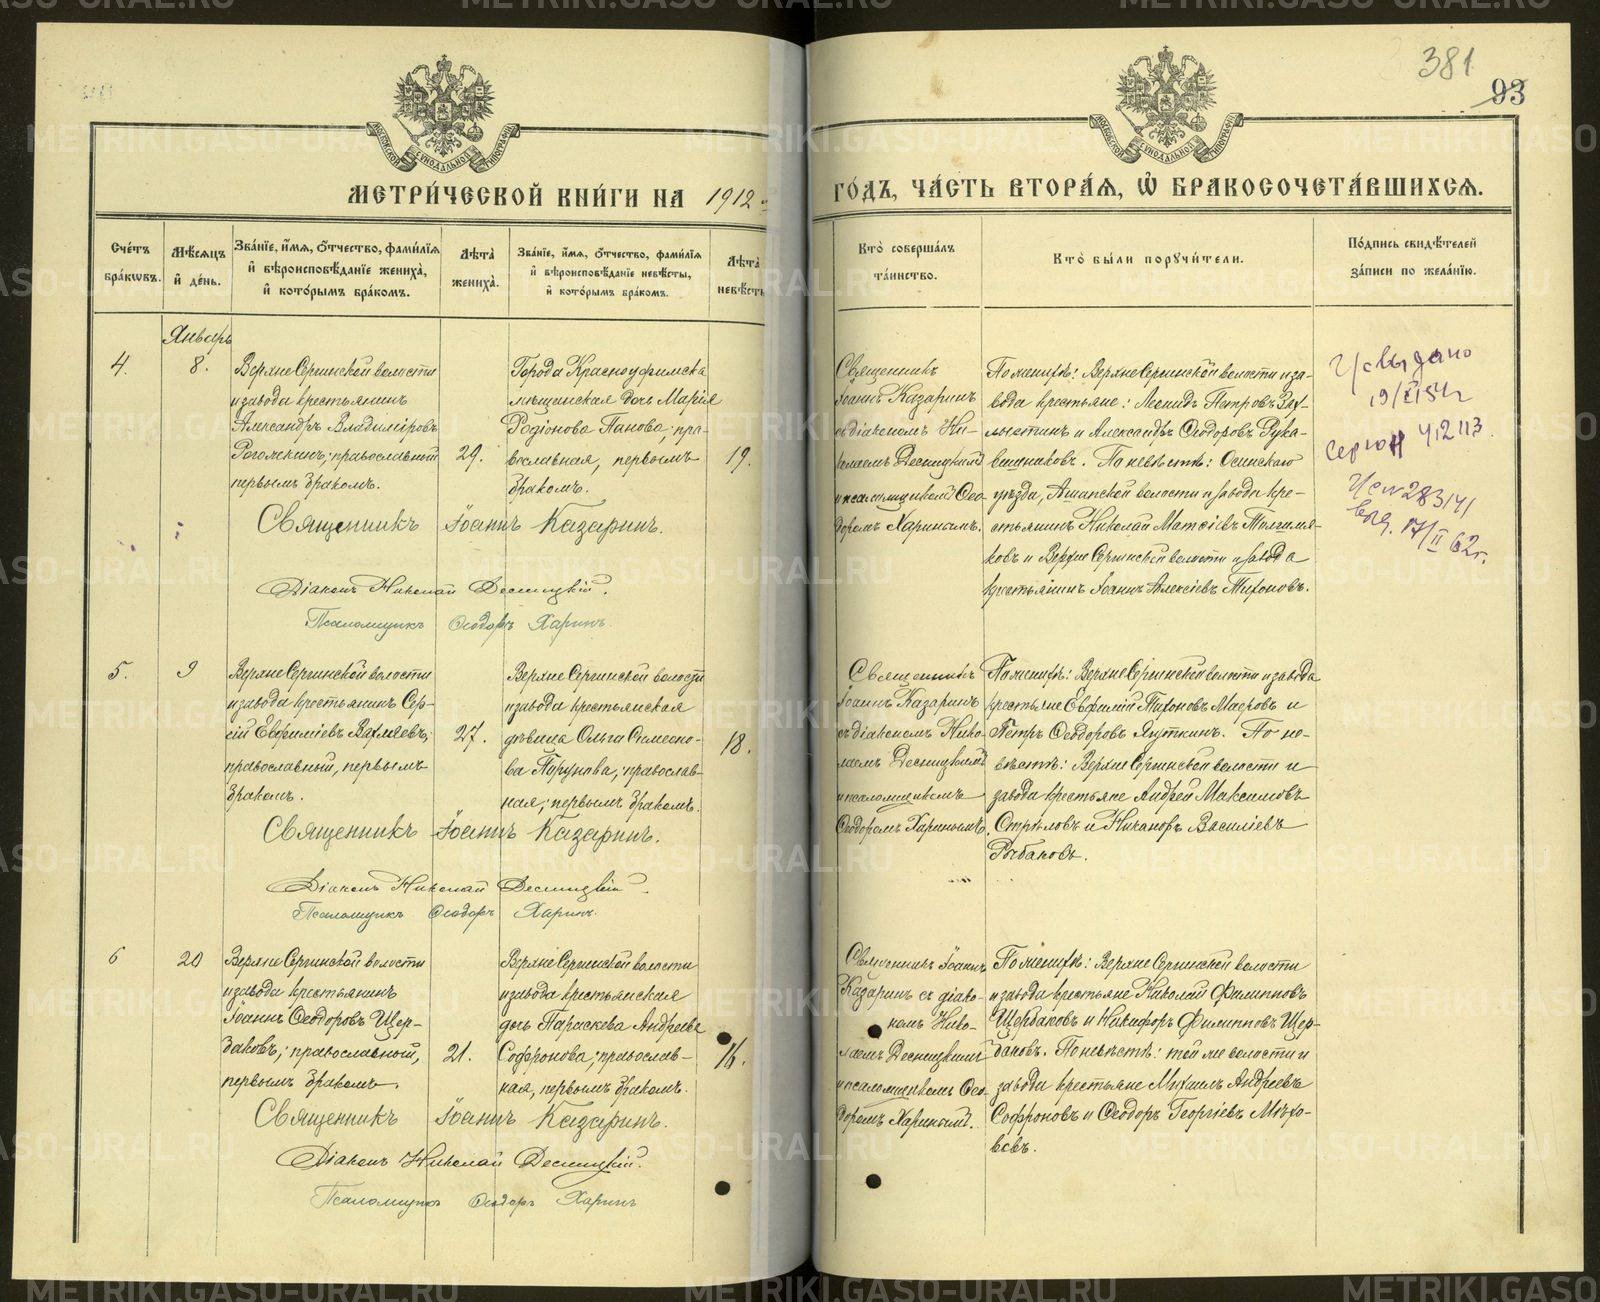 381
93
МОСКОВСКОЙ СѴНОДАЛЬНОЙ ТИПОГРАФІИ
МЕТРИ́ЧЕСКОЙ КНИ́ГИ НА 1912
ГО́ДЪ, ЧА́СТЬ ВТОРА́Я, Ѡ БРАКОСОЧЕТА́ВШИХСЯ.
Сче́тъ бра́кѡвъ.
Мѣ́сяцъ и҆ де́нь.
Зва́нїе, и҆́мя, ѻ҆́тчество, фами́лїя и҆ вѣроисповѣ́данїе жениха̀, и҆ кото́рымъ бра́комъ.
Лѣ́та̀ жениха̀.
Зва́нїе, и҆́мя, ѻ҆́тчество, фами́лїя и҆ вѣроисповѣ́данїе невѣ́сты, и҆ кото́рымъ бра́комъ.
Лѣ́та̀ невѣ́сты
Кто̀ соверша́лъ та́инство.
Кто̀ бы́ли поручи́тели.
По́дпись свидѣ́телей за́писи по жела́нїю.
Январь
4.
8.
Верхне Сергинской волости
и завода крестьянинъ
Александръ Владиміровъ
Рогожкинъ, православный
первымъ бракомъ.
29.
Города Красноуфимска
мѣщанская дочь Марія
Родіонова Панова, пра-
вославная, первымъ
бракомъ.
19.
Священникъ
Іоаннъ Казаринъ
съ діакономъ Ни-
колаемъ Десницкимъ
и псаломщикомъ Ѳео-
доромъ Харинымъ.
По женихѣ: Верхне Сергинской волости и за-
вода крестьяне: Леонидъ Петровъ
и Александръ Ѳеодоровъ Рука-
вишниковъ. По невѣстѣ: Осинскаго
уѣзда, Ашапской волости и завода кре-
стьянинъ Николай Матѳіевъ
и Верхне Сергинской волости и завода
крестьянинъ Іоаннъ Алексіевъ Тихоновъ.
выдано
19/
283141
выд. 17/II 62г.
Священникъ Іоаннъ Казаринъ.
Діаконъ Николай Десницкій.
Псаломщикъ Ѳеодоръ Харинъ.
5.
9
Верхне Сергинской волости
и завода крестьянинъ Сер-
гій Евфиміевъ
православный, первымъ
бракомъ.
27.
Верхне Сергинской волости
и завода крестьянская
дѣвица Ольга Симеоно-
ва Порунова, православ-
ная, первымъ бракомъ.
18.
Священникъ
Іоаннъ Казаринъ
съ діакономъ Нико-
лаемъ Десницкимъ
и псаломщикомъ
Ѳеодоромъ Харинымъ.
По женихѣ: Верхне Сергинской волости и завода
крестьяне Евфимій Тихоновъ Маеровъ и
Петръ Ѳеодоровъ Япуткинъ. По не-
вѣстѣ: Верхне Сергинской волости и
завода крестьяне Андрей Максимовъ
Стрѣловъ и Никаноръ Василіевъ
Рыбаковъ.
Священникъ Іоаннъ Казаринъ.
Діаконъ Николай Десницкій.
Псаломщикъ Ѳеодоръ Харинъ.
6
20
Верхне Сергинской волости
и завода крестьянинъ
Іоаннъ Ѳеодоровъ Щер-
баковъ, православный,
первымъ бракомъ.
21.
Верхне Сергинской волости
и завода крестьянская
дочь Параскева Андреева
Софронова, православ-
ная, первымъ бракомъ.
16.
Священникъ Іоаннъ
Казаринъ съ діако-
номъ Нико-
лаемъ Десницкимъ
и псаломщикомъ Ѳео-
доромъ Харинымъ.
По женихѣ: Верхне Сергинской волости
и завода крестьяне Николай Филипповъ
Щербаковъ и Никифоръ Филипповъ Щер-
баковъ. По невѣстѣ: той же волости и
завода крестьяне Михаилъ Андреевъ
Софроновъ и Ѳеодоръ Георгіевъ Мѣхо-
вовъ.
Священникъ Іоаннъ Казаринъ.
Діаконъ Николай Десницкій.
Псаломщикъ Ѳеодоръ Харинъ
METRIKI.GASO-URAL.RU